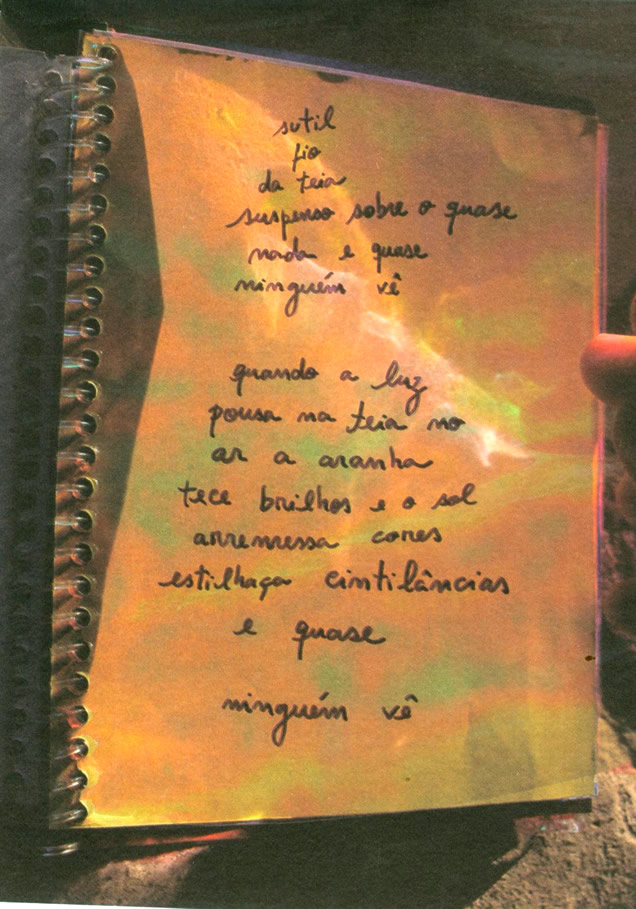 sutil
fio
da teia
suspenso sobre o quase
nada e quase
ninguém vê
quando a luz
pousa na teia no
ar a aranha
tece brilhos e o sol
arremessa cores
estilhaça cintilâncias
e quase
ninguém vê